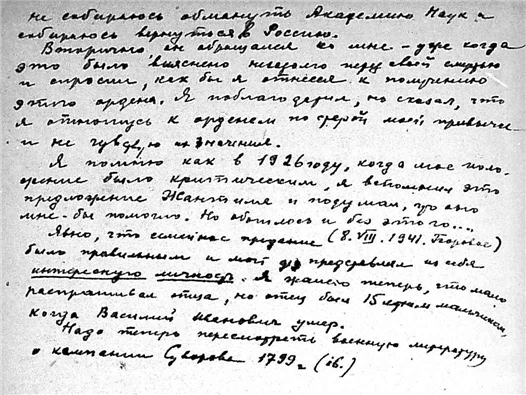 не собираюсь обмануть Академию Наук и
собираюсь вернуться в Россию.
Вторично он обращался ко мне – уже когда
это было выяснено незадолго перед своей смертью
и спросил, как бы я отнесся к получению
этого ордена. Я поблагодарил, но сказал, что
я отношусь к орденам по старой моей привычке
и не чувствую их значения.
Я помню как в 1926 году, когда мое поло-
жение было критическим, я вспомнил это
предложение Жантиля и подумал, что оно
мне бы помогло. Но обошлось и без этого....
Явно, что семейное предание (8.VIII.1941. Боровое)
было правильным и мой дед представлял из себя
интересную личность. Я жалею теперь, что мало
распрашивал отца, но отец был 15 летним мальчиком,
когда Василий Иванович умер.
Надо теперь пересмотреть военную литературу
о кампании Суворова 1799 г. (ib.)